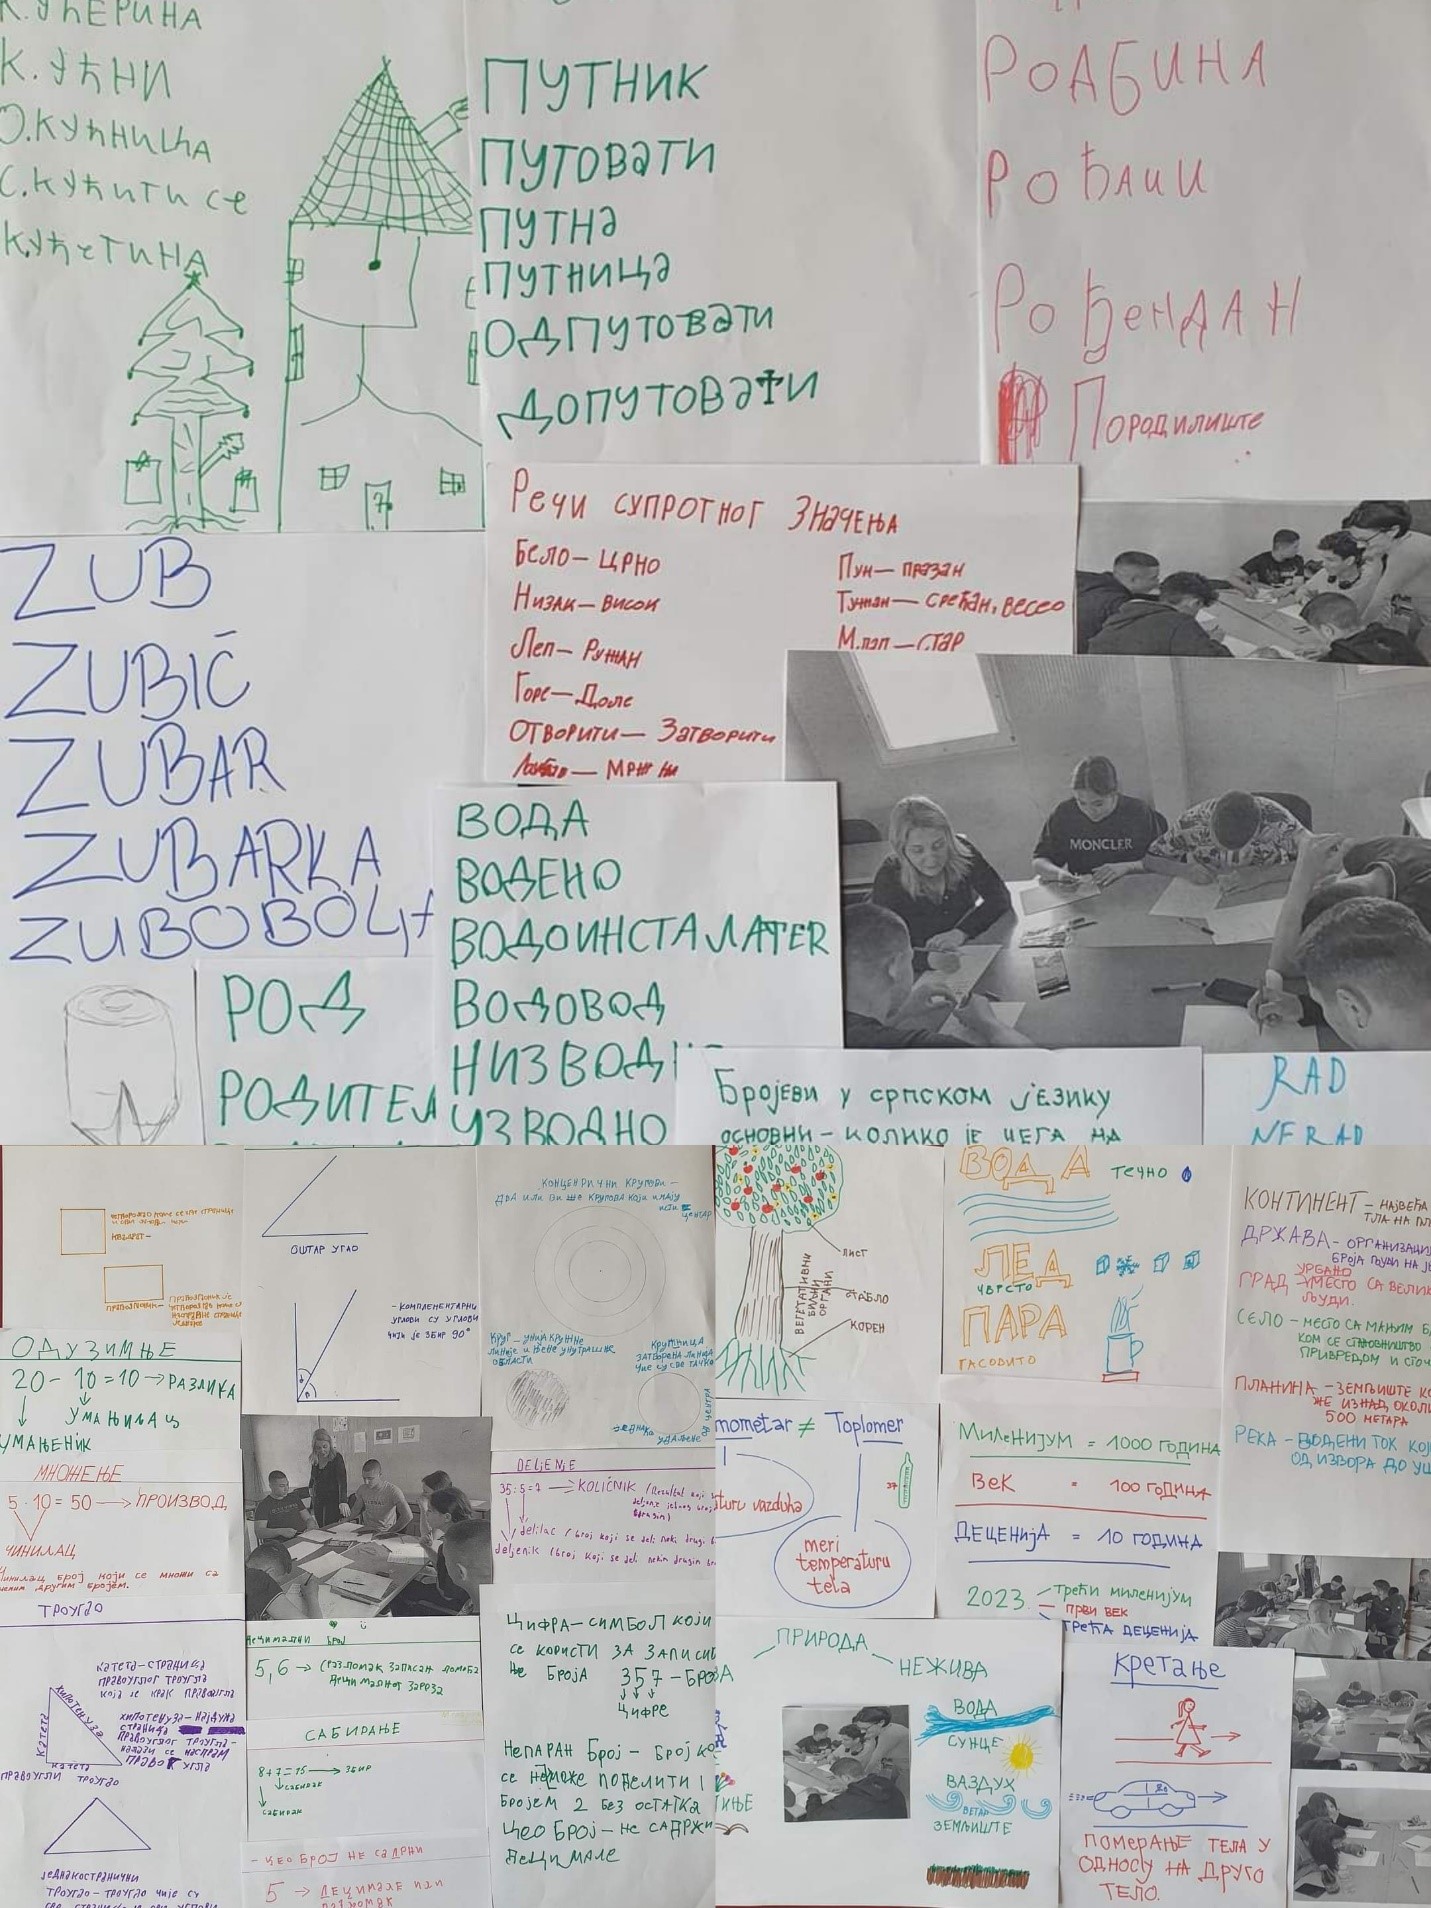 К.УЋЕРИНА
К.УЋНИ
О.КУЋНИЦА
С.КУЋИТИ СЕ
КУЋЕТИНА
7
ПУТНИК
ПУТОВАТИ
ПУТНА
ПУТНИЦА
ОДПУТОВАТИ
ДОПУТОВАТИ
РОДБИНА
РОЂАЦИ
РОЂЕНДАН
ПОРОДИЛИШТЕ
Речи супротног значења
Бело – Црно
Низак – Висок
Леп – Ружан
Горе – Доле
Отворити – Затворити
Пун – празан
Тужан – срећан, весео
Млад – стар
MONCLER
ZUB
ZUBIĆ
ZUBAR
ZUBARKA
РОД
ВОДА
ВОДЕНО
ВОДОИНСТАЛАТER
ВОДОВОД
УЗВОДНО
Бројеви у српском језику
основни – колико је чега на
RAD
NERAD
КВАДРАТ –
ОДУЗИМЊЕ
20 - 10 = 10 → РАЗЛИКА
УМАЊИЛАЦ
УМАЊЕНИК
МНОЖЕЊЕ
5 · 10 = 50 → ПРОИЗВОД
ЧИНИЛАЦ
Чинилац број који се множи са
неким другим бројем.
ТРОУГЛО
КАТЕТА – СТРАНИЦА
ПРАВОУГЛОГ ТРОУГЛА
КОЈА ЈЕ КРАК ПРАВОУГЛА
ХИПОТЕНУЗА – НАЈДУЖА
СТРАНИЦА
ПРАВОУГЛОГ ТРОУГЛА –
НАЛАЗИ СЕ НАСПРАМ
ПРАВОГ УГЛА
КАТЕТА
ХИПОТЕНУЗА
КАТЕТА
ПРАВОУГЛИ ТРОУГЛО
ЈЕДНАКОСТРАНИЧНИ
ТРОУГЛО – ТРОУГЛО ЧИЈЕ СУ
ОШТАР УГАО
- КОМПЛЕМЕНТАРНИ
УГЛОВИ СУ УГЛОВИ
ЧИЈИ ЈЕ ЗБИР 90°
ДЕЦИМАЛНИ БРОЈ
5,6 → (РАЗЛОМАК ЗАПИСАН ПОМОЋУ
ДЕЦИМАЛНОГ ЗАРЕЗА
САБИРАЊЕ
8+7=15 → ЗБИР
САБИРАК
САБИРАК
- ЦЕО БРОЈ НЕ САДРЖИ
5 → ДЕЦИМАЛЕ ИЛИ
КОНЦЕНТРИЧНИ КРУГОВИ –
ДВА ИЛИ ВИШЕ КРУГОВА КОЈИ ИМАЈУ
ИСТИ ЦЕНТАР
КРУГ – УНИЈА КРУЖНЕ
ЛИНИЈЕ И ЊЕНЕ УНУТРАШЊЕ
ОБЛАСТИ
КРУЖНИЦА
ЗАТВОРЕНА ЛИНИЈА
ЧИЈЕ СУ СВЕ ТАЧКЕ
ЈЕДНАКО
УДАЉЕНЕ
ОД ЦЕНТРА
DELJENJE
35:5=7 → KOLIČNIK (Rezultat koji
delilac (broj koji se deli neki drugi
deljenik (broj koji se deli nekim drugim
ЦИФРА – СИМБОЛ КОЈИ
се користи за записив
ње БРОЈА 357 – БРОЈ
ЦИФРЕ
НЕПАРАН БРОЈ – БРОЈ КО
се не може поделити
Бројем 2 без остатка
ЦЕО БРОЈ – НЕ САДРЖИ
ДЕЦИМАЛЕ
ЛИСТ
СТАБЛО
КОРЕН
ВЕГЕТАТИВНИ
БИЉНИ
ОРГАНИ
ВОДА течно
ЛЕД
ЧВРСТО
ПАРА
ГАСОВИТО
mometar ≠ Toplomer
turu vazduha
37
meri
temperaturu
tela
МИЛЕНИЈУМ = 1000 ГОДИНА
ВЕК = 100 ГОДИНА
ДЕЦЕНИЈА = 10 ГОДИНА
2023. ТРЕЋИ МИЛЕНИЈУМ
ПРВИ ВЕК
ТРЕЋА ДЕЦЕНИЈА
КОНТИНЕНТ – НАЈВЕЋА
ТЛА НА
ДРЖАВА – ОРГАНИЗАЦИ
БРОЈА ЉУДИ НА
УРБАНО
ГРАД – МЕСТО СА ВЕЛИК
ЉУДИ.
СЕЛО – МЕСТО СА МАЊИМ Б
КОМ СЕ СТАНОВНИШТВО
ПРИВРЕДОМ И СТОЧ
ПЛАНИНА – ЗЕМЉИШТЕ КО
ЖЕ ИЗНАД ОКОЛИ
500 МЕТАРА
РЕКА – ВОДЕНИ ТОК КОЈ
ОД ИЗВОРА ДО УШ
ПРИРОДА
НЕЖИВА
ВОДА
СУНЦЕ
ВАЗДУХ
ВЕТАР
ЗЕМЉИШТЕ
Кретање
ПОМЕРАЊЕ ТЕЛА У
ОДНОСУ НА ДРУГО
ТЕЛО.